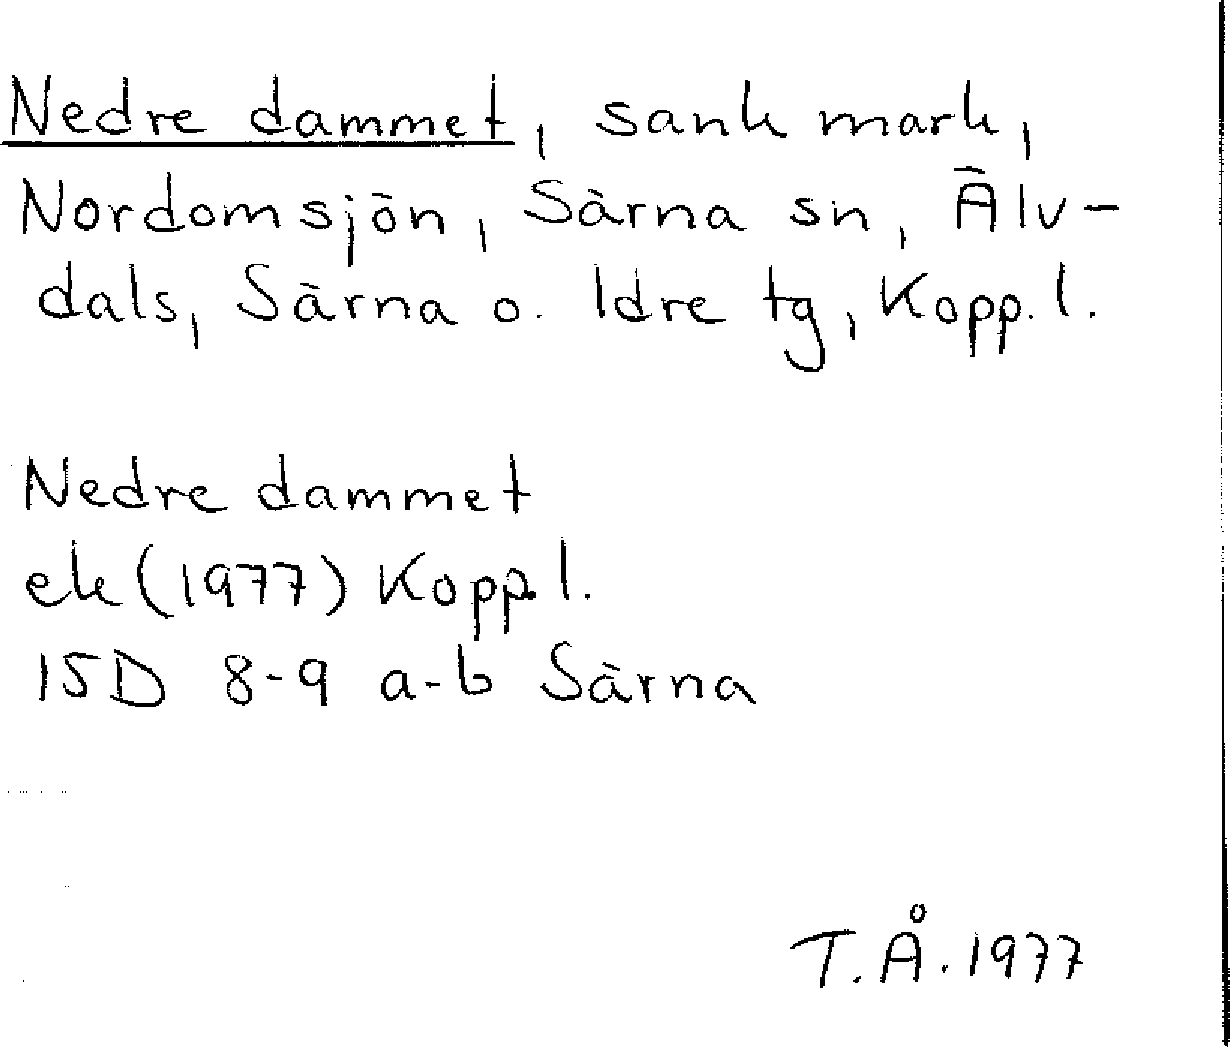 Nedre dammet, sank mark,
Nordomsjön, Särna sn, Älv-
dals, Särna o. Idre tg, Kopp. l.
Nedre dammet
ek (1977) Kopp l.
15D 8-9 a-b Särna
T.Å. 1977